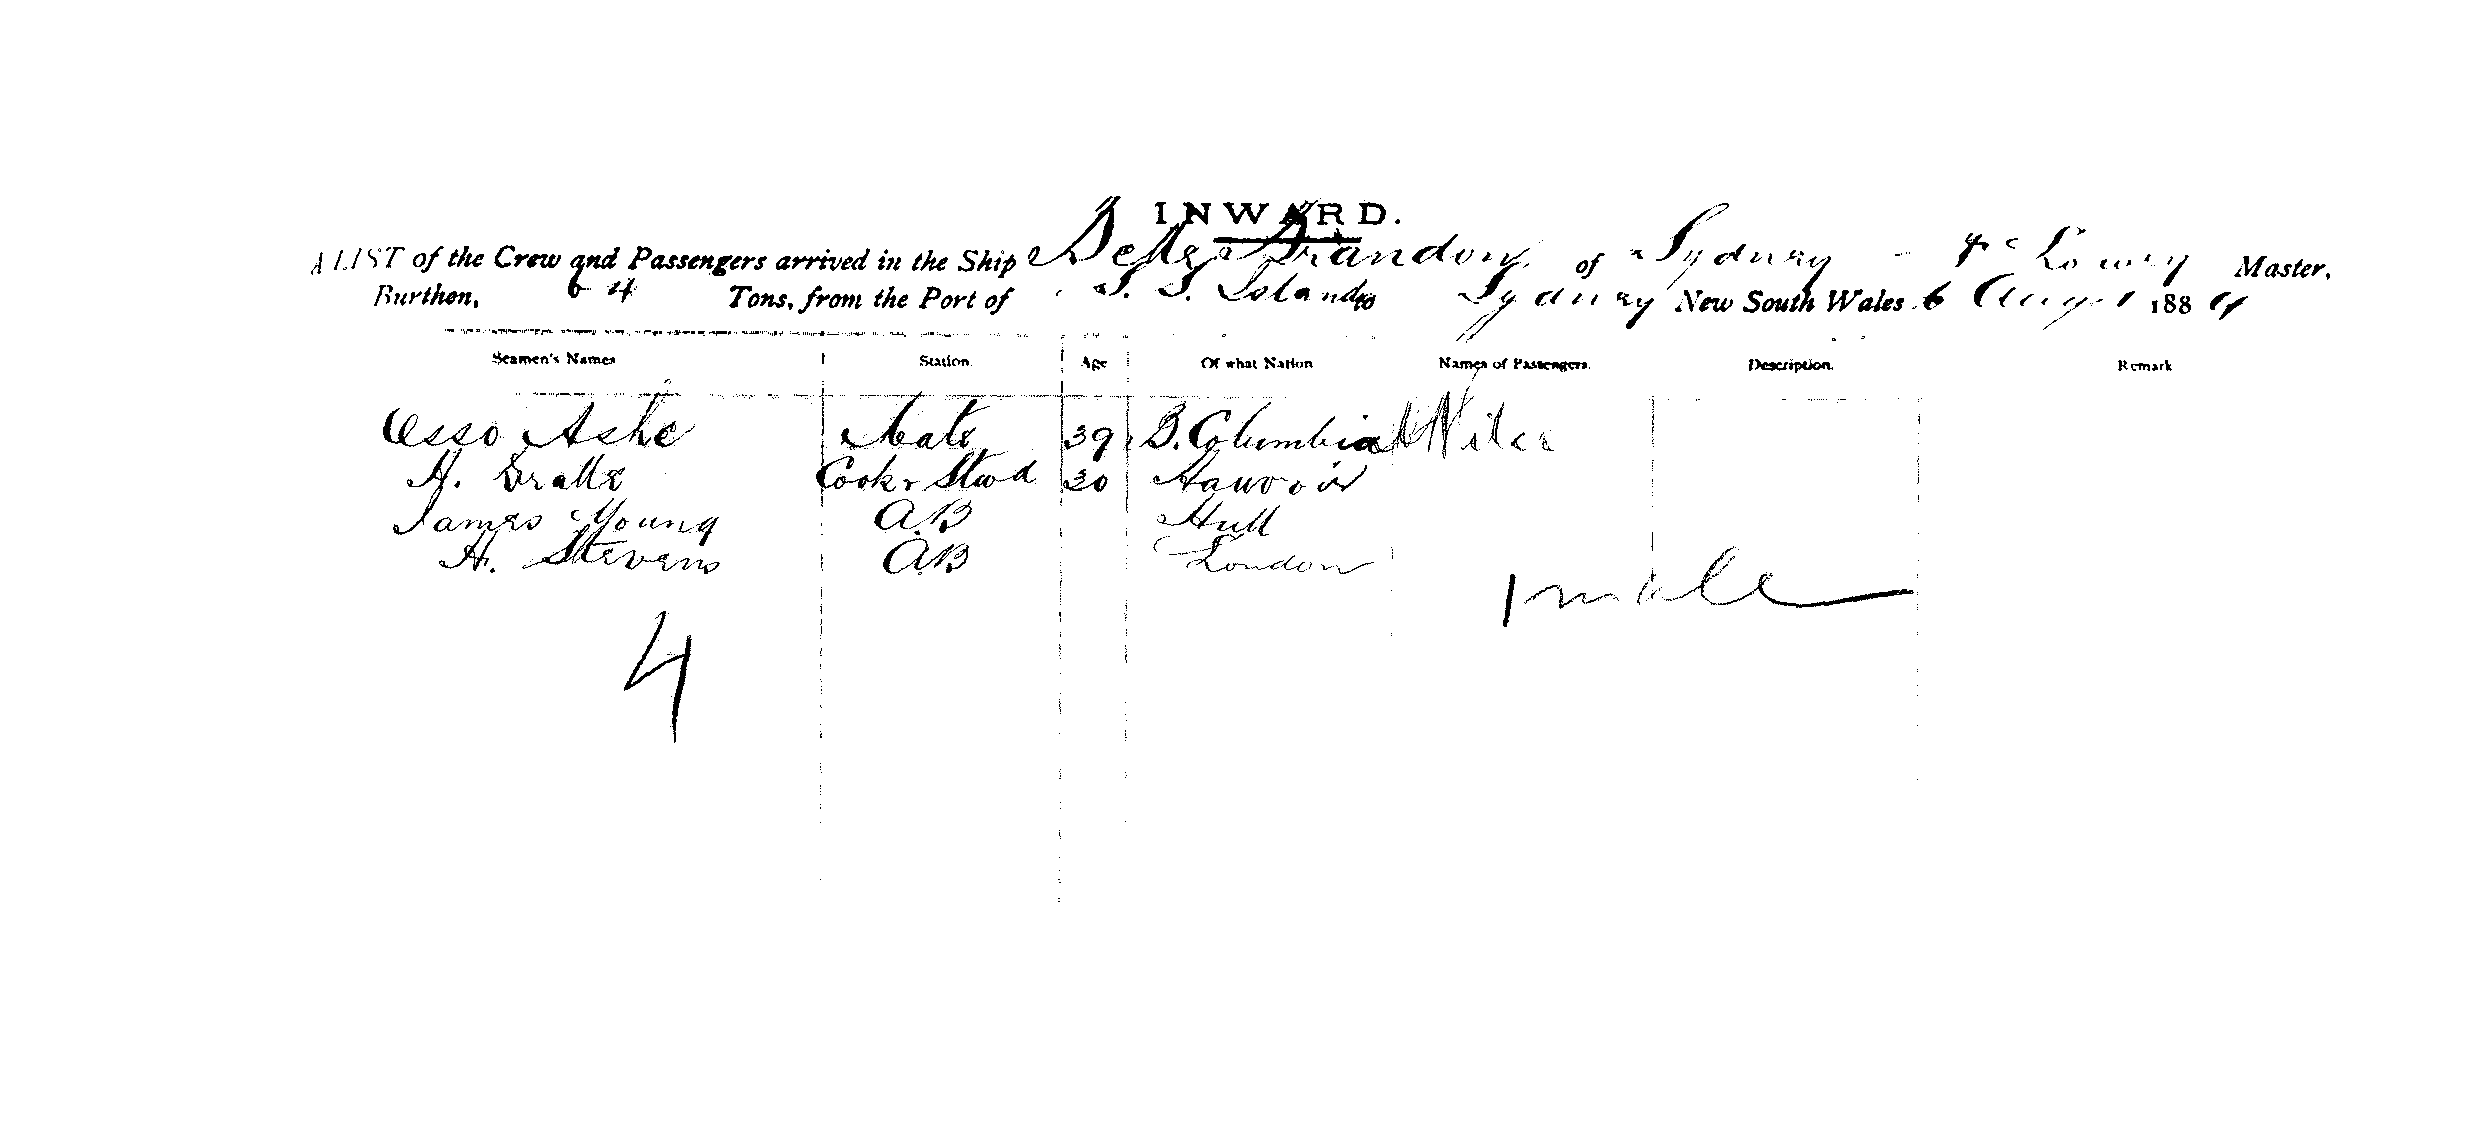 INWARD.
A LIST of the Crew and Passengers arrived in the Ship Belle Brandon of Sydney - Lowry Master,
Burthen, 64 Tons, from the Port of S. S. Islands to Sydney New South Wales 6 Augt 1884
Seamen's Names Station Age Of what Nation Names of Passengers. Description. Remark
Osso Ashe Mate 39 B. Columbia Niles
H. Cook & Stwd 30 Hanover
James Young A.B Hull
H. Stevens A.B London
1 male
4